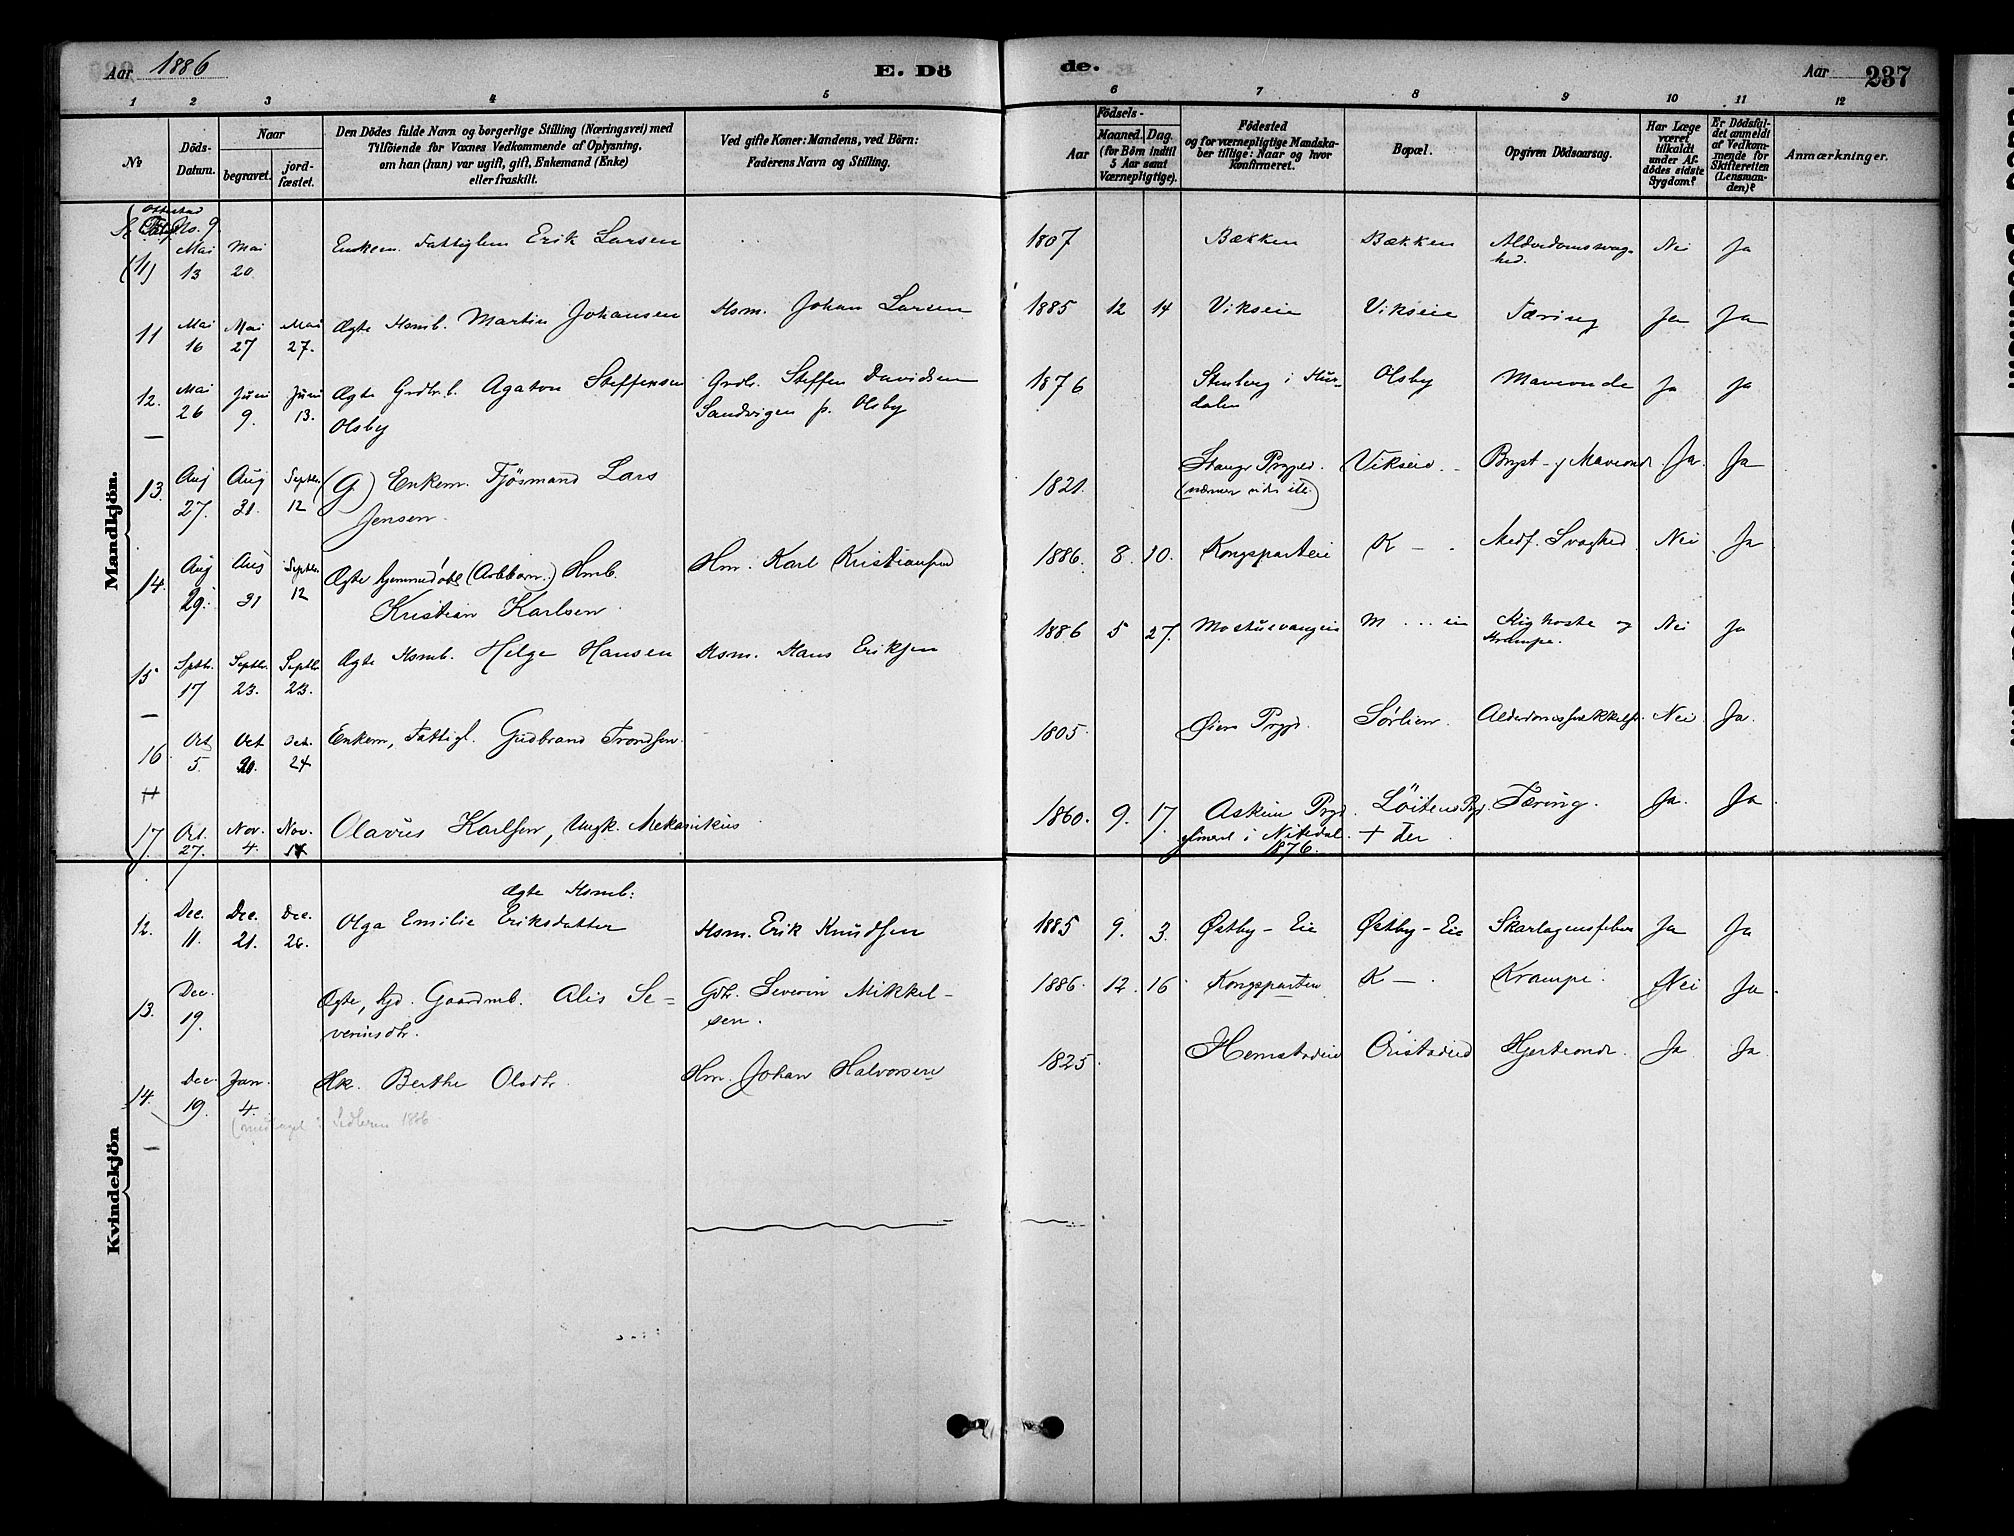 Aar 1886
E. Dö
de.
Aar
237
1 2 3 4 5 6 7 8 9 10 11 12
No
Döds-Datum.
Naar
begravet.
jordfæstet.
Den Dödes fulde Navn og borgerlige Stilling (Næringsvei) med
Tilföiende for Voxnes Vedkommende af Oplysning,
om han (hun) var ugift, gift, Enkemand (Enke)
eller fraskilt.
Ved gifte Koner: Mandens, ved Börn:
Faderens Navn og Stilling.
Födsels-
Aar
Maaned.
Dag.
(for Börn indtil
5 Aar samt
Værnepligtige).
Födested
og for værnepligtige Mandska-
ber tillige: Naar og hvor
konfirmeret.
Bopæl.
Opgiven Dödsaarsag.
Har Læge
været
tilkaldt
under Af-
dödes sidste
Sygdom?
Er Dödsfal-
det anmeldt
af Vedkom-
mende for
Skifteretten
(Lensman-
den)?
Anmærkninger.
Mandkjön.
Ottestad
No. 9
(11) Mai 13 Mai 20. Enkem. Fattiglem Erik Larsen 1807 Bækken Bækken Alderdomssvag-
hed. Nei Ja
11 Mai 16 Mai 27 Mai 27. Ægte Hsmb. Martin Johansen Hsm. Johan Larsen 1885 12 14 Vikseie Vikseie Tæring Ja Ja
12. Mai 26 Juni 9. Juni 13. Ægte Grdbr.b. Agaton Steffensen Grdb. Steffen Davidsen 1876 Stenberg i Hur- Olsby Maveonde Ja Ja
Olsby Sandvigen p. Olsby dalen
13. Aug 27. Aug 31. Septbr. 12 (G) Enkem. Fjøsmand Lars 1821. Stange Prgjed. Vikseie Bryst- og Maveondt. Ja. Ja
Jensen.
14. Aug 29. Aug 31 Septbr. 12 Ægte hjemmedøbt Hmb. Hm. Karl Kristiansen 1886. 8. 10. Kongsparteie K — Medf. Svaghed Nei Ja
Kristian Karlsen
15 Sptb. 17 Septbr. 23. Septbr. 23. Ægte Hsmb. Helge Hansen Hsm. Hans Eriksen 1886 5 27. M ... eie Kighoste og Nei Ja
Krampe.
16 Oct 5. Oct 20. Oct. 24 Enkem, Fattigl. Gudbrand Trondsen. 1805. Prgjd. Sørlien. Nei Ja.
17. Oct. 27. Nov. 4. Nov. Olavus Karlsen, Ungk. Mekanikus 1860. 9. 17. Askim Prgd. Löitens Prgd. Tæring. Ja. Ja
i Nitedal. + der
1876.
Kvindekjön
Ægte Hsmb:
12. Dec. 11. Dec. 21. Dec. 26. Olga Emilie Eriksdatter Hsm. Erik Knudsen 1885 9. 3. Østby-Eie Østby-Eie Skarlagensfeber Ja Ja
13. Dec. 19. Ægte, hjd. Gaardmb. Alis Se= Gdbr. Severin Mikkel- 1886. 12. 16. Kongsparten K — . Krampe. Nei Ja.
verinsdtr. sen.
14. Dec. 19. Jan. 4. Hk. Berthe Olsdtr. Hm. Johan Halvorsen 1825. Hemstadeie Hjerteondt. Ja Ja
(medtaget i Sedleren 1886